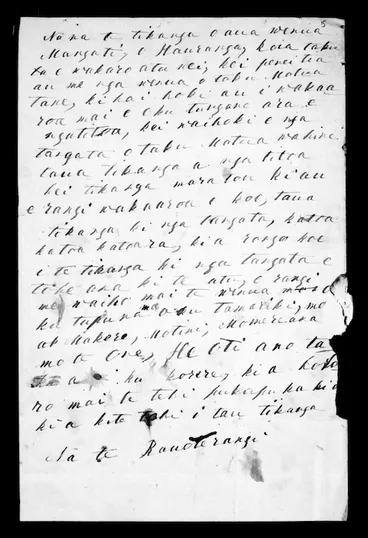 5
Nona te tikanga o aua wenua
Mangati, o Hauranga, koia taku
ka e wakaro atu nei, koi penei tia
au me nga wenua o taku Matua
tane, ki hai hoki au i wakaa
roa mai e oku tungane ara e
ngatitoa, koi waihoki e nga
tangata o taku Matua wahine
taua tikanga a nga titoa
hei tikanga mara tou ki au
e rangi wakaaroa e koe, taua
tikanga ki nga tangata, katoa
katoa katoara, kia rongo koe
i te tikanga ki nga tangata e
tike ana ki te atu, e rangi
me waiho mai te wenua
ku tupuna ma aku tamariki, mo
Makore, Matene, Momeriana
mo te One, He oti ano ta
i ku korire, kia
ro mai te tahi pukapuka ki a
kia kite tahi i tau tikanga
Na te Rauoterangi